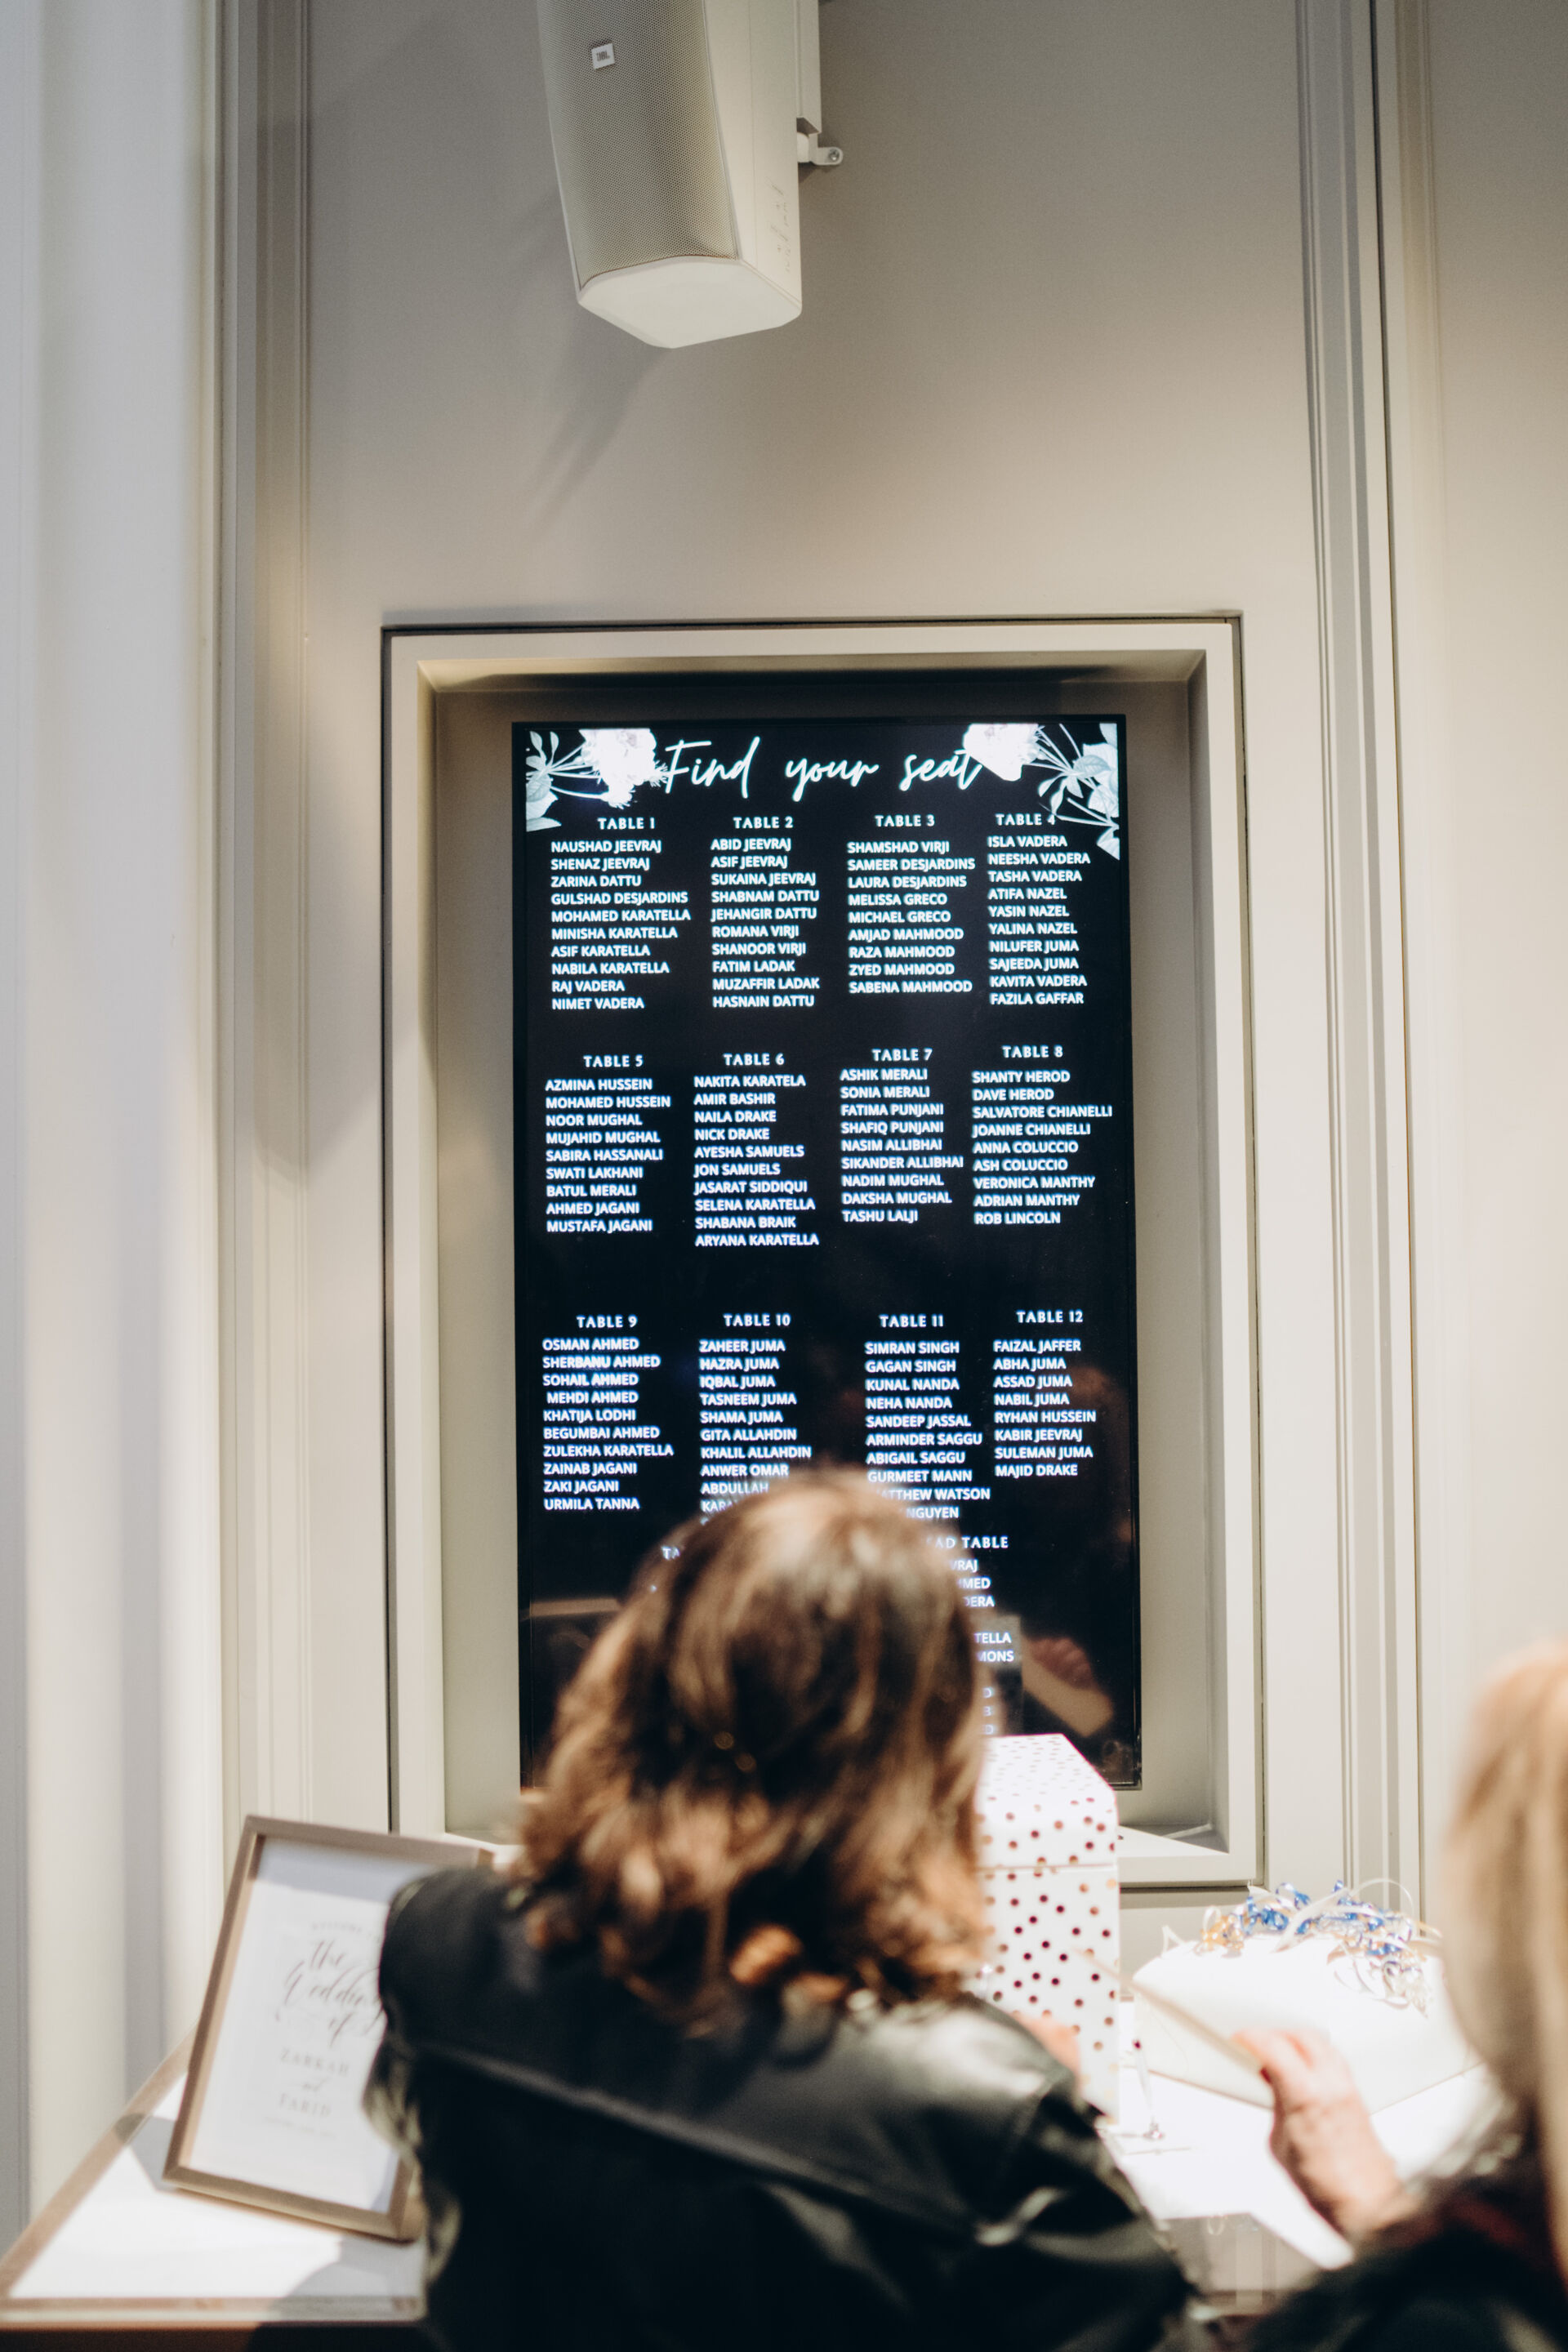 JBL
Find your seat
TABLE 1
NAUSHAD JEEVRAJ
SHENAZ JEEVRAJ
ZARINA DATTU
GULSHAD DESJARDINS
MOHAMED KARATELLA
MINISHA KARATELLA
ASIF KARATELLA
NABILA KARATELLA
RAJ VADERA
NIMET VADERA
TABLE 2
ABID JEEVRAJ
ASIF JEEVRAJ
SUKAINA JEEVRAJ
SHABNAM DATTU
JEHANGIR DATTU
ROMANA VIRJI
SHANOOR VIRJI
FATIM LADAK
MUZAFFIR LADAK
HASNAIN DATTU
TABLE 3
SHAMSHAD VIRJI
SAMEER DESJARDINS
LAURA DESJARDINS
MELISSA GRECO
MICHAEL GRECO
AMJAD MAHMOOD
RAZA MAHMOOD
ZYED MAHMOOD
SABENA MAHMOOD
TABLE 4
ISLA VADERA
NEESHA VADERA
TASHA VADERA
ATIFA NAZEL
YASIN NAZEL
YALINA NAZEL
NILUFER JUMA
SAJEEDA JUMA
KAVITA VADERA
FAZILA GAFFAR
TABLE 5
AZMINA HUSSEIN
MOHAMED HUSSEIN
NOOR MUGHAL
MUJAHID MUGHAL
SABIRA HASSANALI
SWATI LAKHANI
BATUL MERALI
AHMED JAGANI
MUSTAFA JAGANI
TABLE 6
NAKITA KARATELA
AMIR BASHIR
NAILA DRAKE
NICK DRAKE
AYESHA SAMUELS
JON SAMUELS
JASARAT SIDDIQUI
SELENA KARATELLA
SHABANA BRAIK
ARYANA KARATELLA
TABLE 7
ASHIK MERALI
SONIA MERALI
FATIMA PUNJANI
SHAFIQ PUNJANI
NASIM ALLIBHAI
SIKANDER ALLIBHAI
NADIM MUGHAL
DAKSHA MUGHAL
TASHU LALJI
TABLE 8
SHANTY HEROD
DAVE HEROD
SALVATORE CHIANELLI
JOANNE CHIANELLI
ANNA COLUCCIO
ASH COLUCCIO
VERONICA MANTHY
ADRIAN MANTHY
ROB LINCOLN
TABLE 9
OSMAN AHMED
SHERBANU AHMED
SOHAIL AHMED
MEHDI AHMED
KHATIJA LODHI
BEGUMBAI AHMED
ZULEKHA KARATELLA
ZAINAB JAGANI
ZAKI JAGANI
URMILA TANNA
TABLE 10
ZAHEER JUMA
HAZRA JUMA
IQBAL JUMA
TASNEEM JUMA
SHAMA JUMA
GITA ALLAHDIN
KHALIL ALLAHDIN
ANWER OMAR
ABDULLAH
TABLE 11
SIMRAN SINGH
GAGAN SINGH
KUNAL NANDA
NEHA NANDA
SANDEEP JASSAL
ARMINDER SAGGU
ABIGAIL SAGGU
GURMEET MANN
ATTHEW WATSON
NGUYEN
TABLE 12
FAIZAL JAFFER
ABHA JUMA
ASSAD JUMA
NABIL JUMA
RYHAN HUSSEIN
KABIR JEEVRAJ
SULEMAN JUMA
MAJID DRAKE
TABLE
the
Wedding
of
ZARRAH
and
TARIQ